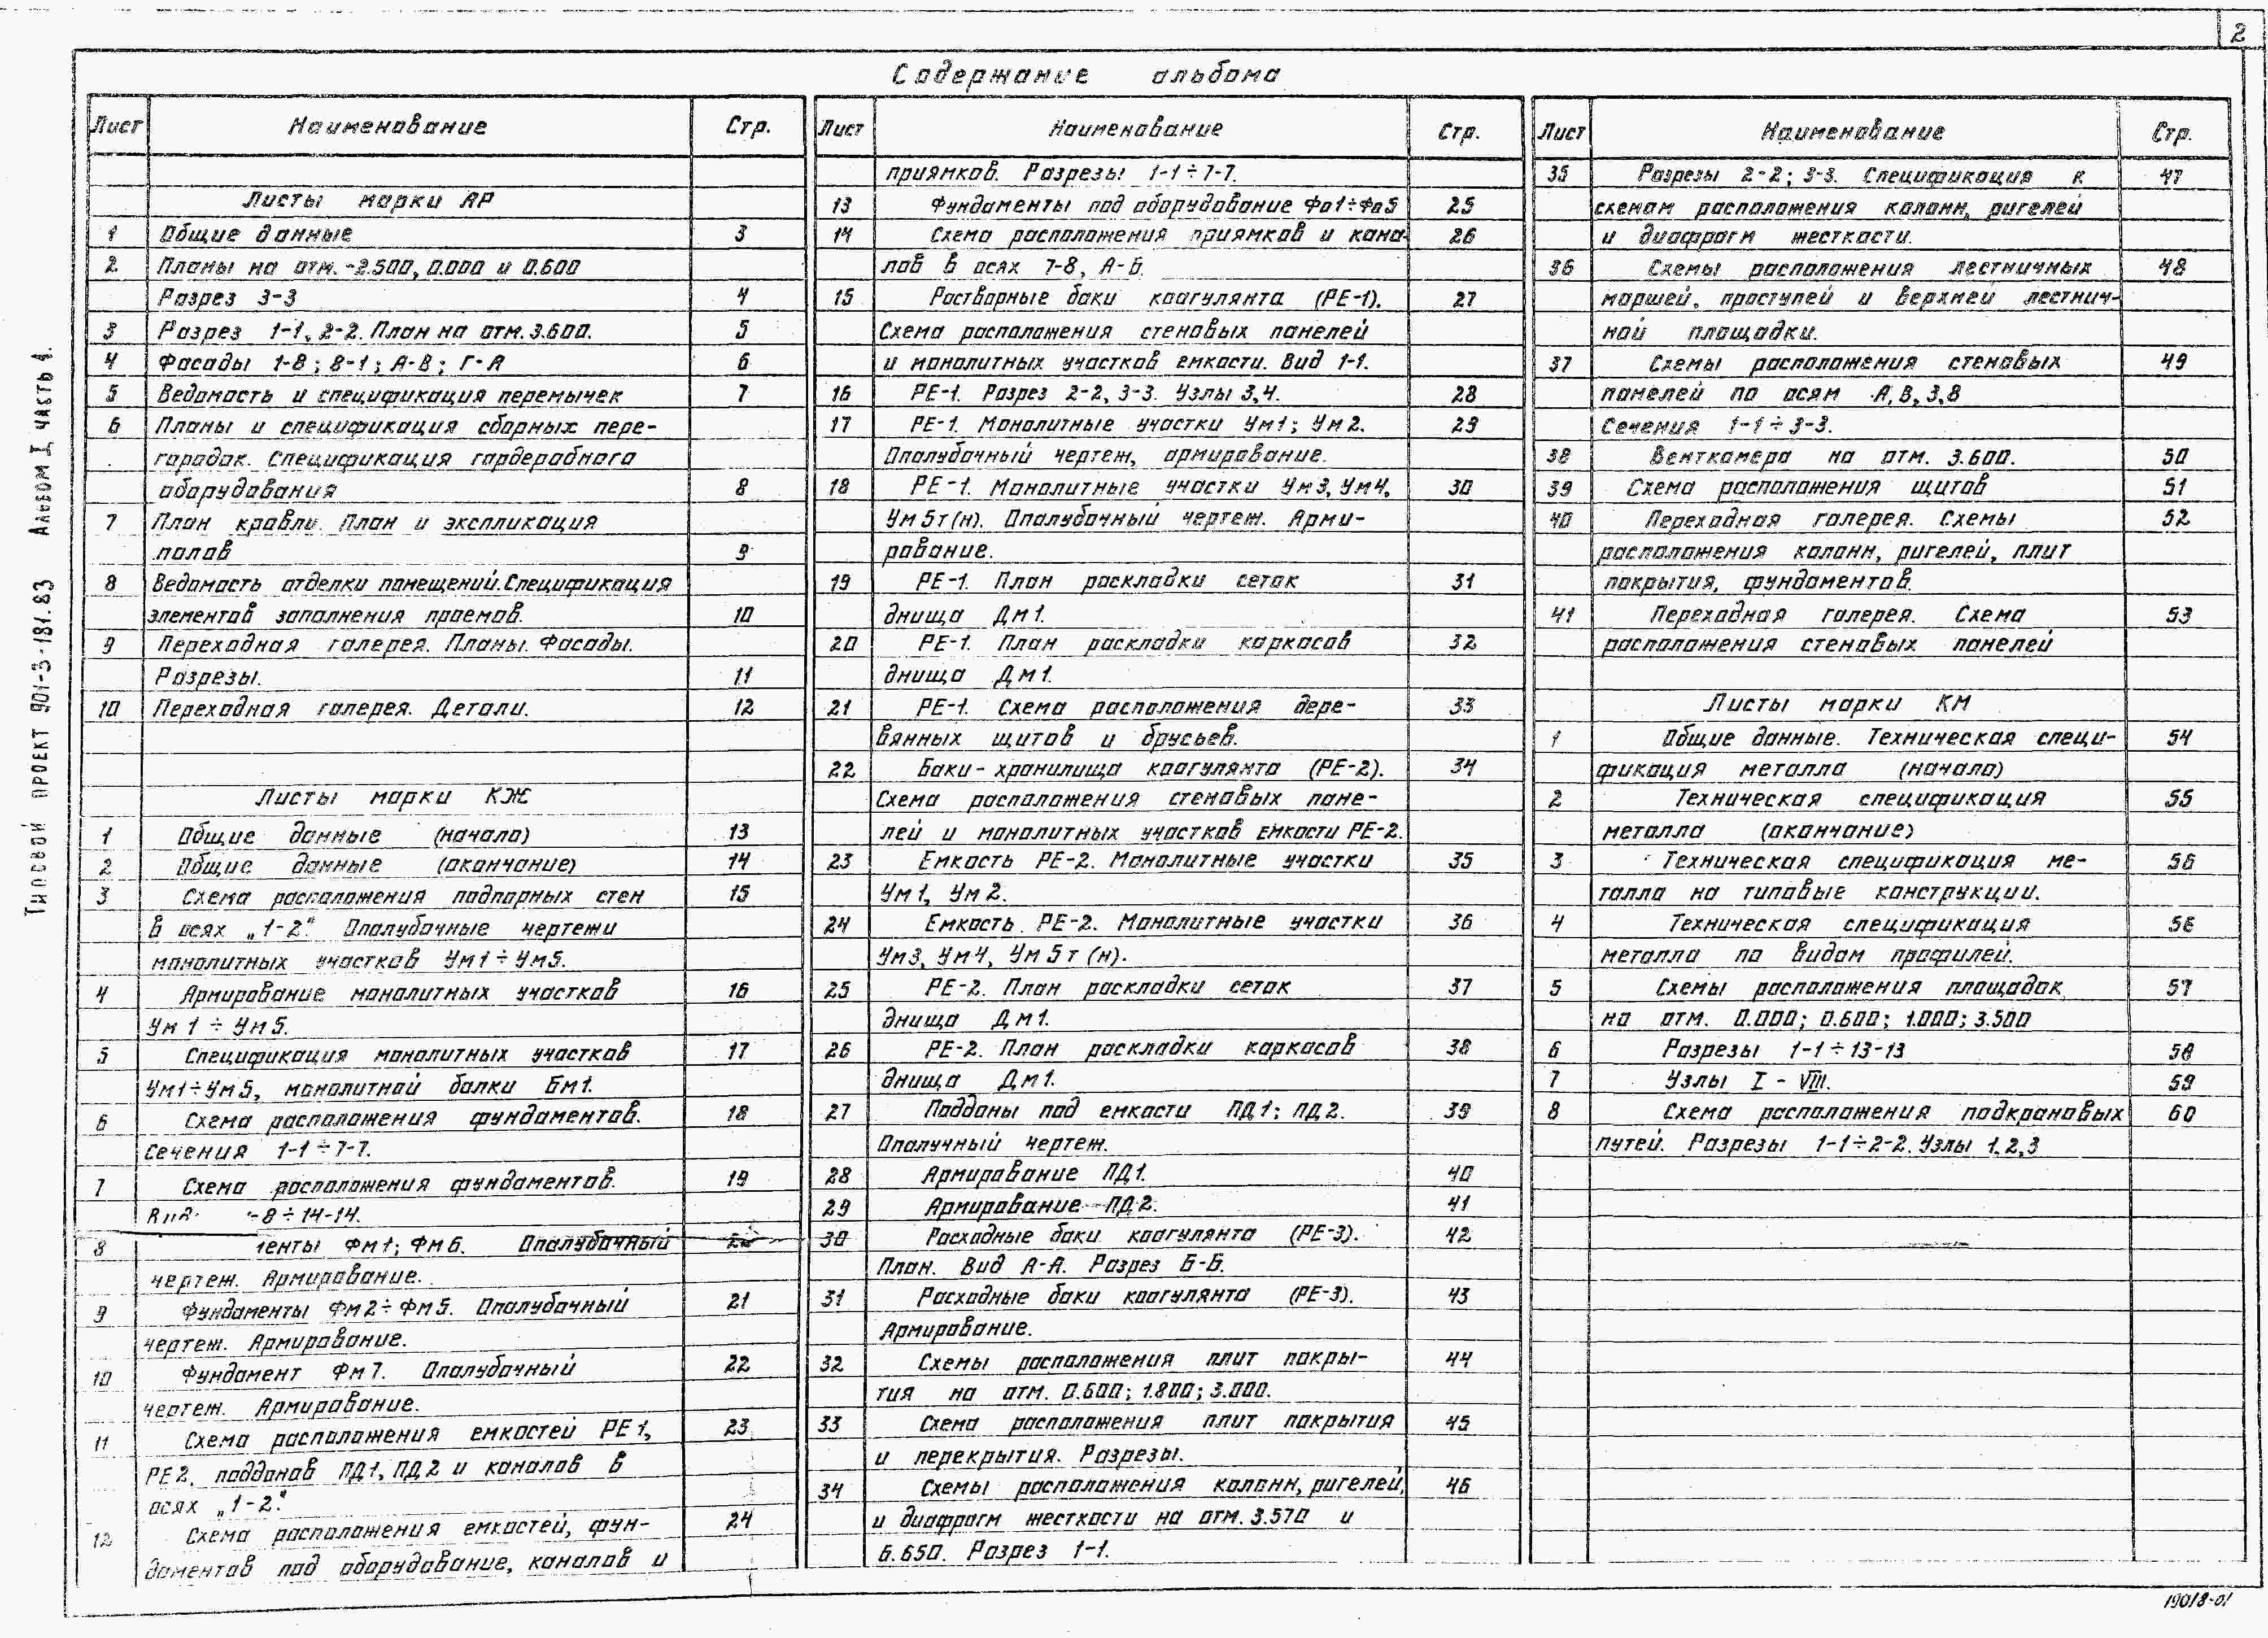 2
Содержание альбома
Типовой проект 901-3-181.83 Альбом I часть 1.
Лист Наименование Стр.
Листы марки АР
1 Общие данные 3
2 Планы на отм. -2.500, 0.000 и 0.600
Разрез 3-3 4
3 Разрез 1-1, 2-2. План на отм. 3.600. 5
4 Фасады 1-8; 8-1; А-В; Г-А 6
5 Ведомость и спецификация перемычек 7
6 Планы и спецификация сборных пере-
городок. Спецификация гардеробного
оборудования 8
7 План кровли. План и экспликация
полов 9
8 Ведомость отделки помещений. Спецификация
элементов заполнения проемов. 10
9 Переходная галерея. Планы. Фасады.
Разрезы. 11
10 Переходная галерея. Детали. 12
Листы марки КЖ
1 Общие данные (начало) 13
2 Общие данные (окончание) 14
3 Схема расположения подпорных стен 15
в осях „1-2". Опалубочные чертежи
монолитных участков Ум1÷Ум5.
4 Армирование монолитных участков 16
Ум1÷Ум5.
5 Спецификация монолитных участков 17
Ум1÷Ум5, монолитной балки Бм1.
6 Схема расположения фундаментов. 18
Сечения 1-1÷7-7.
7 Схема расположения фундаментов. 19
-8÷14-14.
8 енты Фм1; Фм6. Опалубочный
чертеж. Армирование.
9 Фундаменты Фм2÷Фм5. Опалубочный 21
чертеж. Армирование.
10 Фундамент Фм7. Опалубочный 22
чертеж. Армирование.
11 Схема расположения емкостей РЕ1, 23
РЕ2, поддонов ПД1, ПД2 и каналов в
осях „1-2".
12 Схема расположения емкостей, фун- 24
даментов под оборудование, каналов и
Лист Наименование Стр.
приямков. Разрезы 1-1÷7-7.
13 Фундаменты под оборудование Фо1÷Фо5 25
14 Схема расположения приямков и кана- 26
лов в осях 7-8, А-Б.
15 Растворные баки коагулянта (РЕ-1). 27
Схема расположения стеновых панелей
и монолитных участков емкости. Вид 1-1.
16 РЕ-1. Разрез 2-2, 3-3. Узлы 3,4. 28
17 РЕ-1. Монолитные участки Ум1; Ум2. 29
Опалубочный чертеж, армирование.
18 РЕ-1. Монолитные участки Ум3, Ум4, 30
Ум5т(н). Опалубочный чертеж. Арми-
рование.
19 РЕ-1. План раскладки сеток 31
днища Дм1.
20 РЕ-1. План раскладки каркасов 32
днища Дм1.
21 РЕ-1. Схема расположения дере- 33
вянных щитов и брусьев.
22 Баки-хранилища коагулянта (РЕ-2). 34
Схема расположения стеновых пане-
лей и монолитных участков емкости РЕ-2.
23 Емкость РЕ-2. Монолитные участки 35
Ум1, Ум2.
24 Емкость РЕ-2. Монолитные участки 36
Ум3, Ум4, Ум5т(н).
25 РЕ-2. План раскладки сеток 37
днища Дм1.
26 РЕ-2. План раскладки каркасов 38
днища Дм1.
27 Поддоны под емкости ПД1; ПД2. 39
Опалучный чертеж.
28 Армирование ПД1. 40
29 Армирование ПД2. 41
30 Расходные баки коагулянта (РЕ-3). 42
План. Вид А-А. Разрез Б-Б.
31 Расходные баки коагулянта (РЕ-3). 43
Армирование.
32 Схемы расположения плит покры- 44
тия на отм. 0.600; 1.800; 3.000.
33 Схема расположения плит покрытия 45
и перекрытия. Разрезы.
34 Схемы расположения колонн, ригелей, 46
и диафрагм жесткости на отм. 3.570 и
6.650. Разрез 1-1.
Лист Наименование Стр.
35 Разрезы 2-2; 3-3. Спецификация к 47
схемам расположения колонн, ригелей
и диафрагм жесткости.
36 Схемы расположения лестничных 48
маршей, проступей и верхней лестнич-
ной площадки.
37 Схемы расположения стеновых 49
панелей по осям А,В,3,8
Сечения 1-1÷3-3.
38 Венткамера на отм. 3.600. 50
39 Схема расположения щитов 51
40 Переходная галерея. Схемы 52
расположения колонн, ригелей, плит
покрытия, фундаментов.
41 Переходная галерея. Схема 53
расположения стеновых панелей
Листы марки КМ
1 Общие данные. Техническая специ- 54
фикация металла (начало)
2 Техническая спецификация 55
металла (окончание)
3 Техническая спецификация ме- 56
талла на типовые конструкции.
4 Техническая спецификация 56
металла по видам профилей.
5 Схемы расположения площадок 57
на отм. 0.000; 0.600; 1.000; 3.500
6 Разрезы 1-1÷13-13 58
7 Узлы I - VIII. 59
8 Схема расположения подкрановых 60
путей. Разрезы 1-1÷2-2. Узлы 1,2,3
19018-01